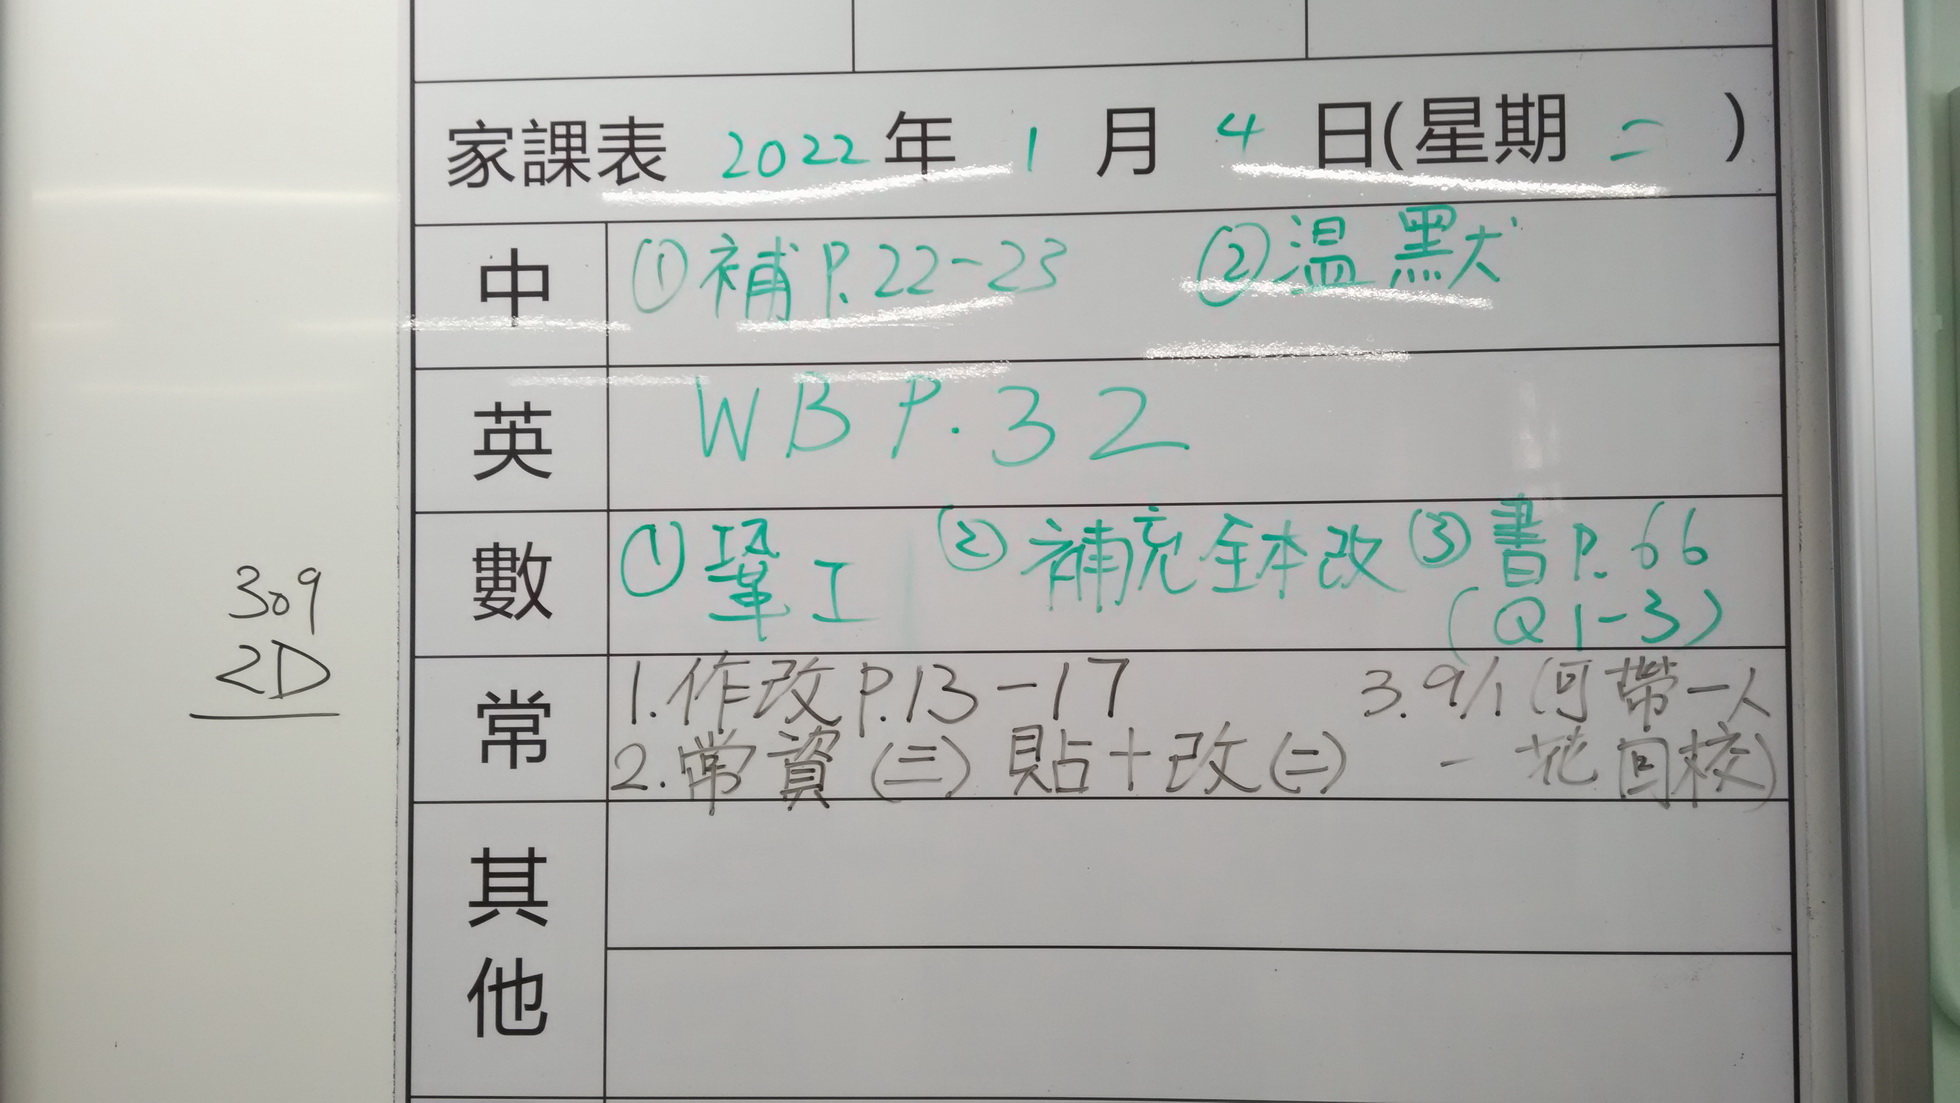 家課表 2022年 1月 4日(星期二)
中 ①補P.22-23 ②溫默
英 WB P.32
數 ①鞏工 ②補充全本改 ③書P.66
(Q1-3)
常 1.作改P.13-17 3.9/1(可帶一人
2.常資(三)貼+改(二) 一花回校)
其他
309
2D